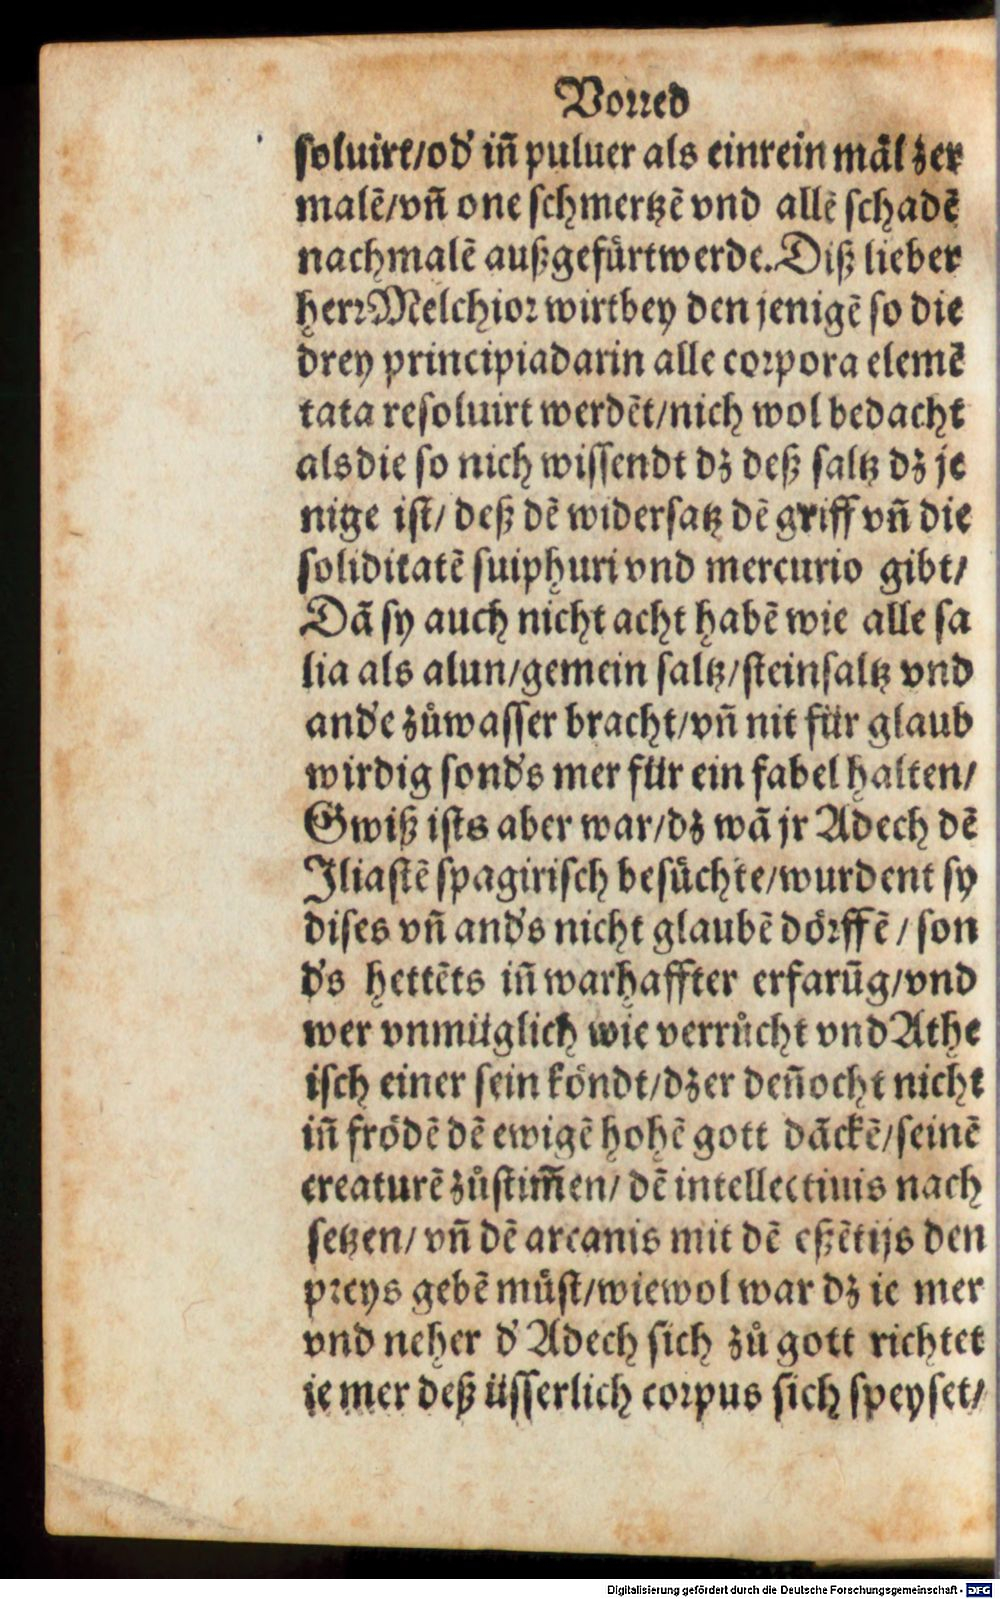 Vorred
soluirt/od' iñ puluer als einrein mål zer
malē/vñ one schmertzē vnd allē schadē
nachmalē außgefürtwerde. Diß lieber
herr Melchior wirtbey den jenigē so die
drey principiadarin alle corpora elemē
tata resoluirt werdēt/nich wol bedacht
alsdie so nich wissendt dz deß saltz dz je
nige ist/ deß dē widersatz dē griff vñ die
soliditatē suiphuri vnd mercurio gibt/
Dā sy auch nicht acht habē wie alle sa
lia als alun/gemein saltz/steinsaltz vnd
and'e zůwasser bracht/vñ nit für glaub
wirdig sond's mer für ein fabel halten/
Gwiß ists aber war/dz wā jr Adech dē
Iliastē spagirisch besůchte/wurdent sy
dises vñ and's nicht glaubē dörffē/ son
d's hettēts iñ warhaffter erfarūg/vnd
wer vnmüglich wie verrůcht vnd Athe
isch einer sein köndt/dzer deñocht nicht
iñ frödē dē ewigē hohē gott dāckē/seinē
creaturē zůstim̄en/ dē intellectiuis nach
setzen/ vñ dē arcanis mit dē eßētijs den
preys gebē můst/wiewol war dz ie mer
vnd neher d' Adech sich zů gott richtet
ie mer deß üsserlich corpus sich speyset/
Digitalisierung gefördert durch die Deutsche Forschungsgemeinschaft - DFG